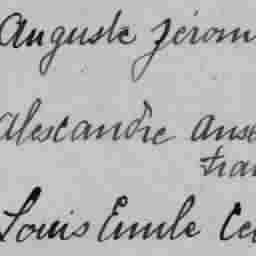 Auguste Jérom
alexandre anse
fran
Louis Emile Ce